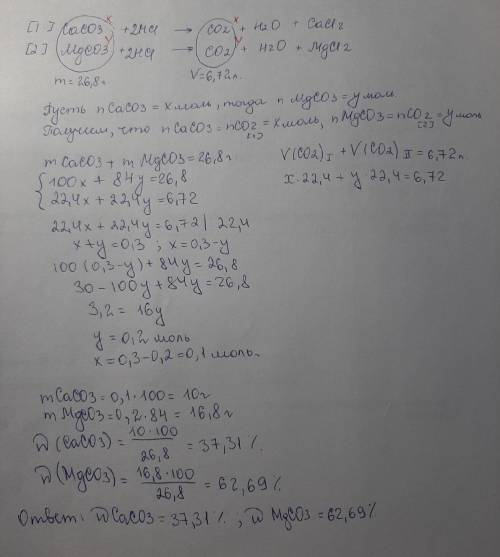 [1] CaCO3 x + 2HCl → CO2 x + H2O + CaCl2
[2] MgCO3 y + 2HCl → CO2 y + H2O + MgCl2
m = 26,8г V = 6,72л.
Пусть n CaCO3 = x моль, тогда n MgCO3 = y моль
Получим, что n CaCO3 = nCO2 [1] = x моль, n MgCO3 = nCO2 [2] = y моль
m CaCO3 + m MgCO3 = 26,8г V(CO2) I + V(CO2) II = 6,72л.
{ 100x + 84y = 26,8 x · 22,4 + y · 22,4 = 6,72
22,4x + 22,4y = 6,72
22,4x + 22,4y = 6,72 | 22,4
x + y = 0,3 ; x = 0,3 - y
100 (0,3 - y) + 84y = 26,8
30 - 100y + 84y = 26,8
3,2 = 16y
y = 0,2 моль
x = 0,3 - 0,2 = 0,1 моль.
m CaCO3 = 0,1 · 100 = 10г
m MgCO3 = 0,2 · 84 = 16,8г
W (CaCO3) = 10 · 100 / 26,8 = 37,31 %.
W (MgCO3) = 16,8 · 100 / 26,8 = 62,69 %
Ответ: W CaCO3 = 37,31 % ; W MgCO3 = 62,69 %